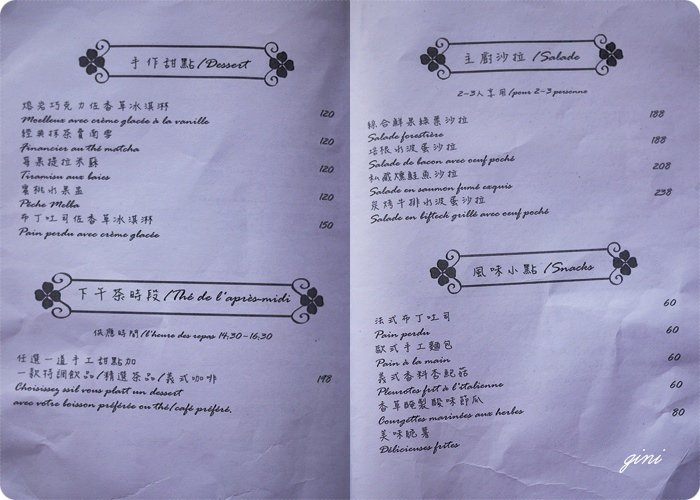 手作甜點/Dessert
熔岩巧克力佐香草冰淇淋
Moelleux avec crème glacée à la vanille 120
經典抹茶費南雪
Financier au thé matcha 120
莓果提拉米蘇
Tiramisu aux baies 120
蜜桃水果盅
Pêche Melba 120
布丁吐司佐香草冰淇淋
Pain perdu avec crème glacée 150
下午茶時段/Thé de l'après-midi
供應時間/l'heure des repas 14:30-16:30
任選一道手工甜點加
一款特調飲品/精選茶品/義式咖啡 198
Choisissez ssil vous plaît un dessert
avec votre boisson préférée ou thé/café préféré.
主廚沙拉/Salade
2-3人享用/pour 2-3 personne
綜合鮮果綠葉沙拉 188
Salade forestière
培根水波蛋沙拉 188
Salade de bacon avec oeuf poché
私藏燻鮭魚沙拉 208
Salade en saumon fumé exquis
炭烤牛排水波蛋沙拉 238
Salade en bifteck grillé avec oeuf poché
風味小點/Snacks
法式布丁吐司 60
Pain perdu
歐式手工麵包 60
Pain à la main
義式香料杏鮑菇 60
Pleurotes frit à l'italienne
香草醃製酸味節瓜 60
Courgettes marinées aux herbes
美味脆薯 80
Délicieuses frites
gini